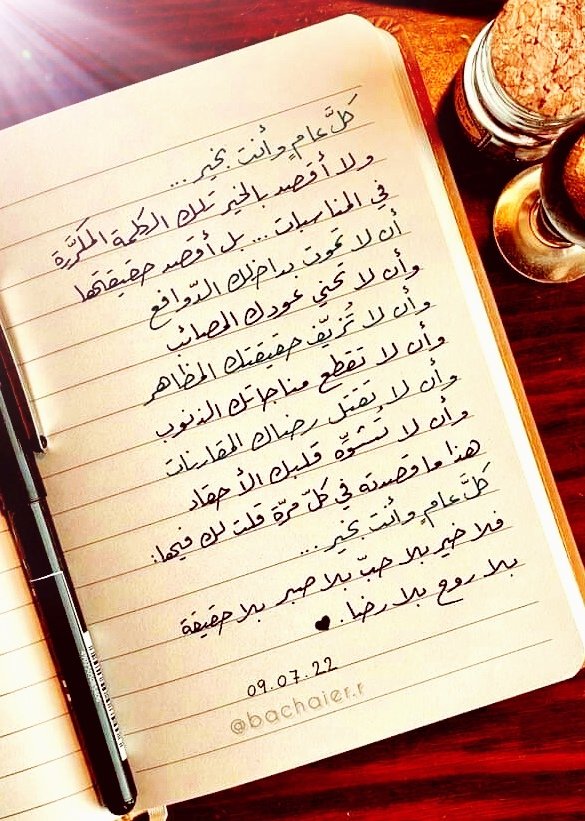 كلَّ عامٍ وأنت بخير ...
ولا أقصد بالخير تلك الكلمة المكرَّرة
في المناسبات ... بل أقصد حقيقتها
أن لا تموت بداخلك الدّوافع
وأن لا تحني عودك المصائب
وأن لا تُزيّف حقيقتك المظاهر
وأن لا تقطع مناجاتك الذنوب
وأن لا تقتل رضاك المقارنات
وأن لا تُشوّه قلبك الأحقاد
هذا ما قصدته في كلّ مرّة قلت لك فيها:
كلَّ عامٍ وأنت بخير ...
فلا خير بلا حبّ بلا صبر بلا حقيقة
بلا روح بلا رضا. ♥
09.07.22
@bachaier.r